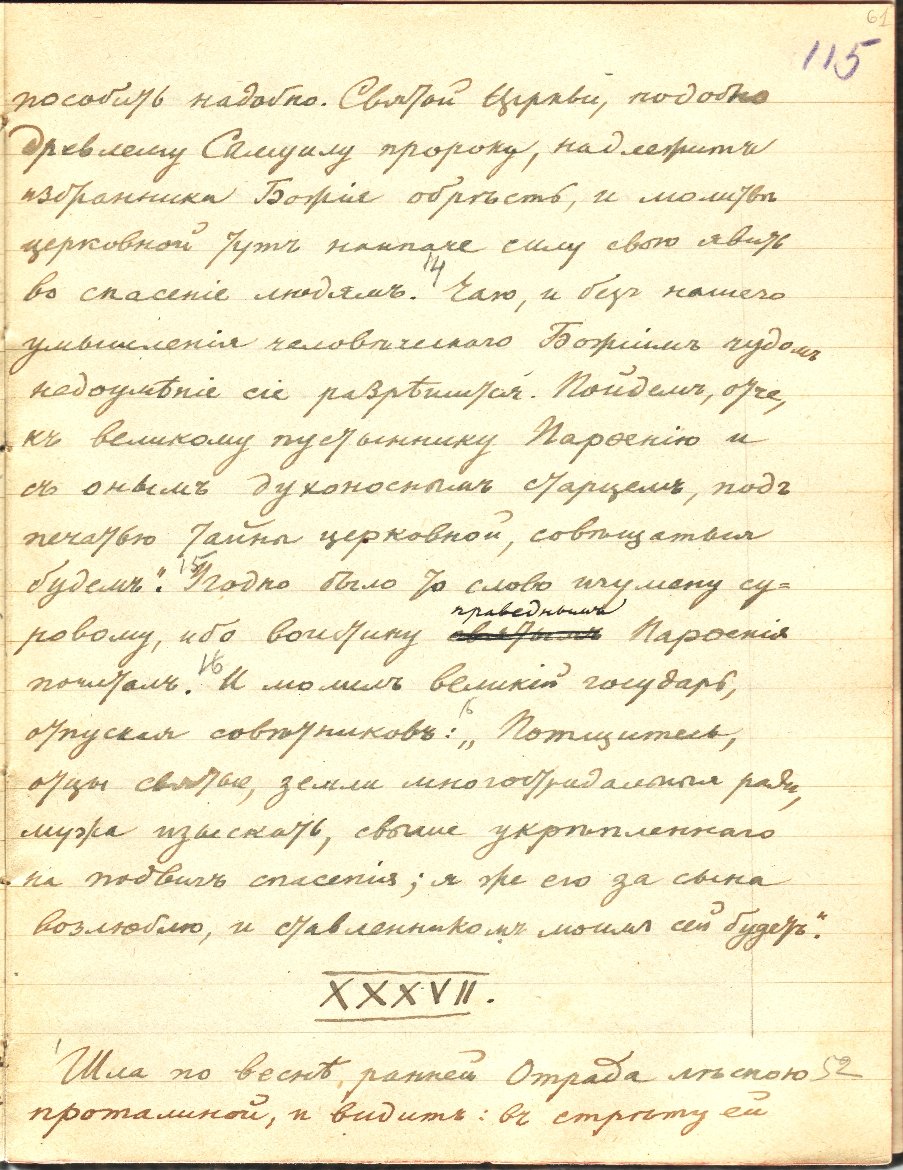 61
115
пособить надобно. Святой Церкви, подобно
древлему Самуилу пророку, надлежитъ
избранника Божіе обрѣсть, и молитвѣ
церковной тутъ наипаче силу свою явить
во спасеніе людямъ. 14 Чаю, и безъ нашего
умышленія человѣческаго Божіимъ чудомъ
недоумѣніе сіе разрѣшится. Пойдемъ, отче,
къ великому пустыннику Парѳенію и
съ онымъ духоноснымъ старцемъ, подъ
печатью тайны церковной, совѣщаться
будемъ". 15 Угодно было то слово игумену су=
ровому, ибо воистину святымъ праведнымъ Парѳенія
почиталъ. 16 И молилъ великій государь,
отпуская совѣтниковъ: 16 „Потщитесь,
отцы святые, земли многострадальныя ради,
мужа изыскать, свыше укрѣпленнаго
на подвигъ спасенія; я же его за сына
возлюблю, и ставленникомъ моимъ сей будетъ".
XXXVII.
1 Шла по веснѣ ранней Отрада лѣсною 52
проталиной, и видитъ: въ стрѣту ей